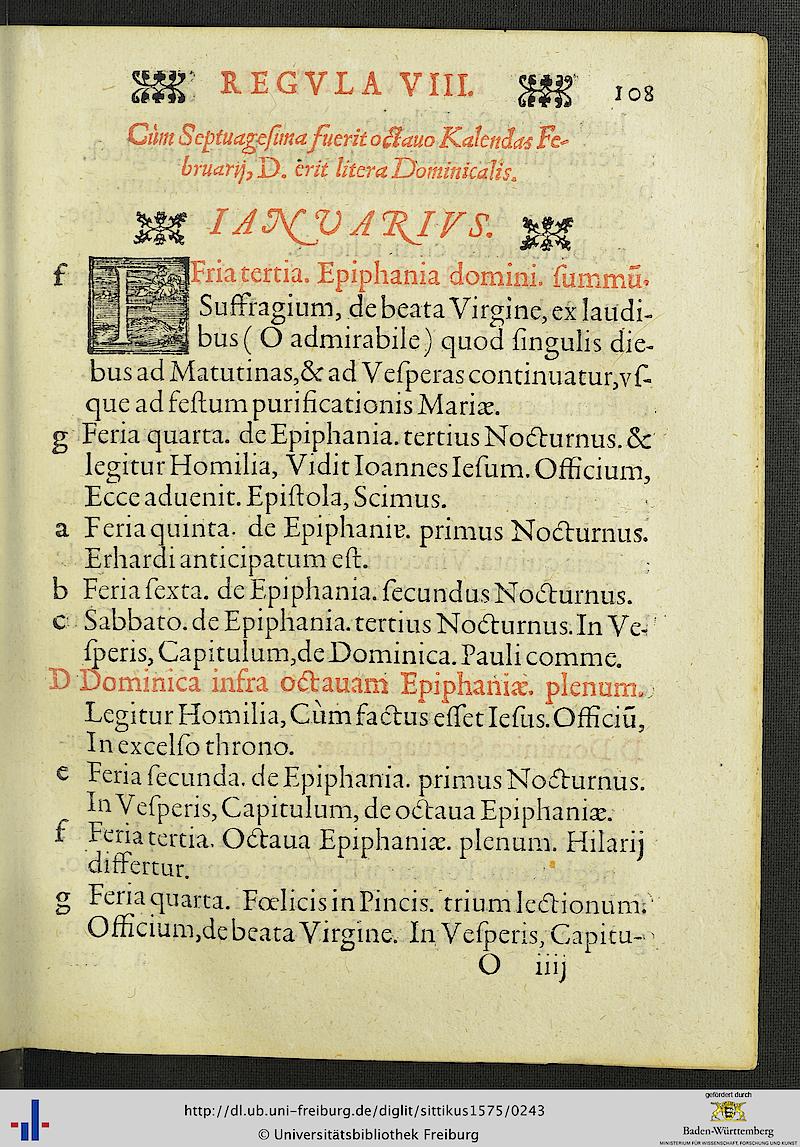 REGVLA VIII. 108
Cùm Septuagesima fuerit octauo Kalendas Fe-
bruarij, D. erit litera Dominicalis.
IANVARIVS.
f FEria tertia. Epiphania domini. summū.
Suffragium, de beata Virgine, ex laudi-
bus ( O admirabile ) quod singulis die-
bus ad Matutinas, & ad Vesperas continuatur, vs-
que ad festum purificationis Mariæ.
g Feria quarta. de Epiphania. tertius Nocturnus. &
legitur Homilia, Vidit Ioannes Iesum. Officium,
Ecce aduenit. Epistola, Scimus.
a Feria quinta. de Epiphania. primus Nocturnus.
Erhardi anticipatum est.
b Feria sexta. de Epiphania. secundus Nocturnus.
c Sabbato. de Epiphania. tertius Nocturnus. In Ve-
speris, Capitulum, de Dominica. Pauli comme.
D Dominica infra octauam Epiphaniæ. plenum.
Legitur Homilia, Cùm factus esset Iesus. Officiū,
In excelso throno.
e Feria secunda. de Epiphania. primus Nocturnus.
In Vesperis, Capitulum, de octaua Epiphaniæ.
f Feria tertia. Octaua Epiphaniæ. plenum. Hilarij
differtur.
g Feria quarta. Fœlicis in Pincis. trium lectionum.
Officium, de beata Virgine. In Vesperis, Capitu-
O iiij
http://dl.ub.uni-freiburg.de/diglit/sittikus1575/0243
© Universitätsbibliothek Freiburg
gefördert durch
Baden-Württemberg
MINISTERIUM FÜR WISSENSCHAFT, FORSCHUNG UND KUNST